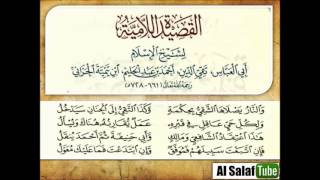 القصيدة اللامية
لشيخ الإسلام
أبي العباس، تقي الدين، أحمد بن عبد الحليم، ابن تيمية الحراني
رحمه الله تعالى (٦٦١-٧٢٨هـ)
والنار يصلاها الشقي بحكمة وكذا التقي إلى الجنان سيدخل
ولكل حي عاقل في قبره عمل يقارنه هناك ويسأل
هذا اعتقاد الشافعي ومالك وأبي حنيفة ثم أحمد ينقل
فإن اتبعت سبيلهم فموفق وإن ابتدعت فما عليك معول
Al Salaf Tube